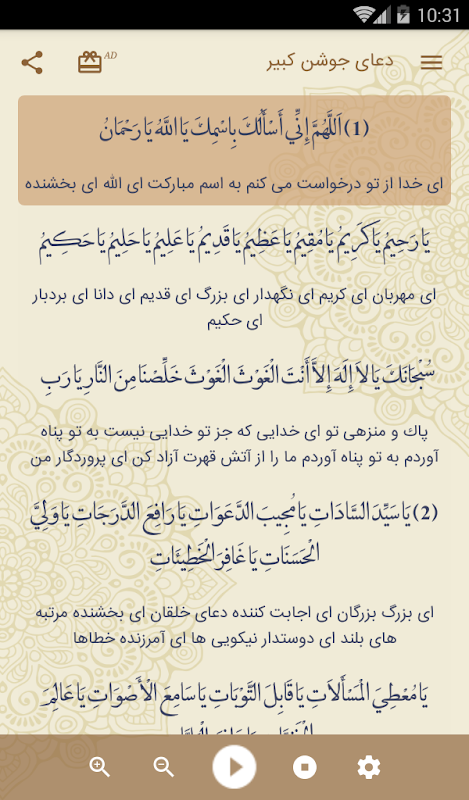 10:31
دعای جوشن کبیر
AD
(1) اَللَّهُمَّ إِنِّي أَسْأَلُكَ بِاسْمِكَ يَا اللَّهُ يَا رَحْمَانُ
ای خدا از تو درخواست می کنم به اسم مبارکت ای الله ای بخشنده
يَا رَحِيمُ يَا كَرِيمُ يَا مُقِيمُ يَا عَظِيمُ يَا قَدِيمُ يَا عَلِيمُ يَا حَلِيمُ يَا حَكِيمُ
ای مهربان ای کریم ای نگهدار ای بزرگ ای قدیم ای دانا ای بردبار
ای حکیم
سُبْحَانَكَ يَا لاَ إِلَهَ إِلاَّ أَنْتَ الْغَوْثَ الْغَوْثَ خَلِّصْنَا مِنَ النَّارِ يَا رَبِ
پاك و منزهی تو ای خدایی که جز تو خدایی نیست به تو پناه
آوردم به تو پناه آوردم ما را از آتش قهرت آزاد کن ای پروردگار من
(2) يَا سَيِّدَ السَّادَاتِ يَا مُجِيبَ الدَّعَوَاتِ يَا رَافِعَ الدَّرَجَاتِ يَا وَلِيَّ
الْحَسَنَاتِ يَا غَافِرَ الْخَطِيئَاتِ
ای بزرگ بزرگان ای اجابت کننده دعای خلقان ای بخشنده مرتبه
های بلند ای دوستدار نیکویی ها ای آمرزنده خطاها
يَا مُعْطِيَ الْمَسْأَلاَتِ يَا قَابِلَ التَّوْبَاتِ يَا سَامِعَ الْأَصْوَاتِ يَا عَالِمَ